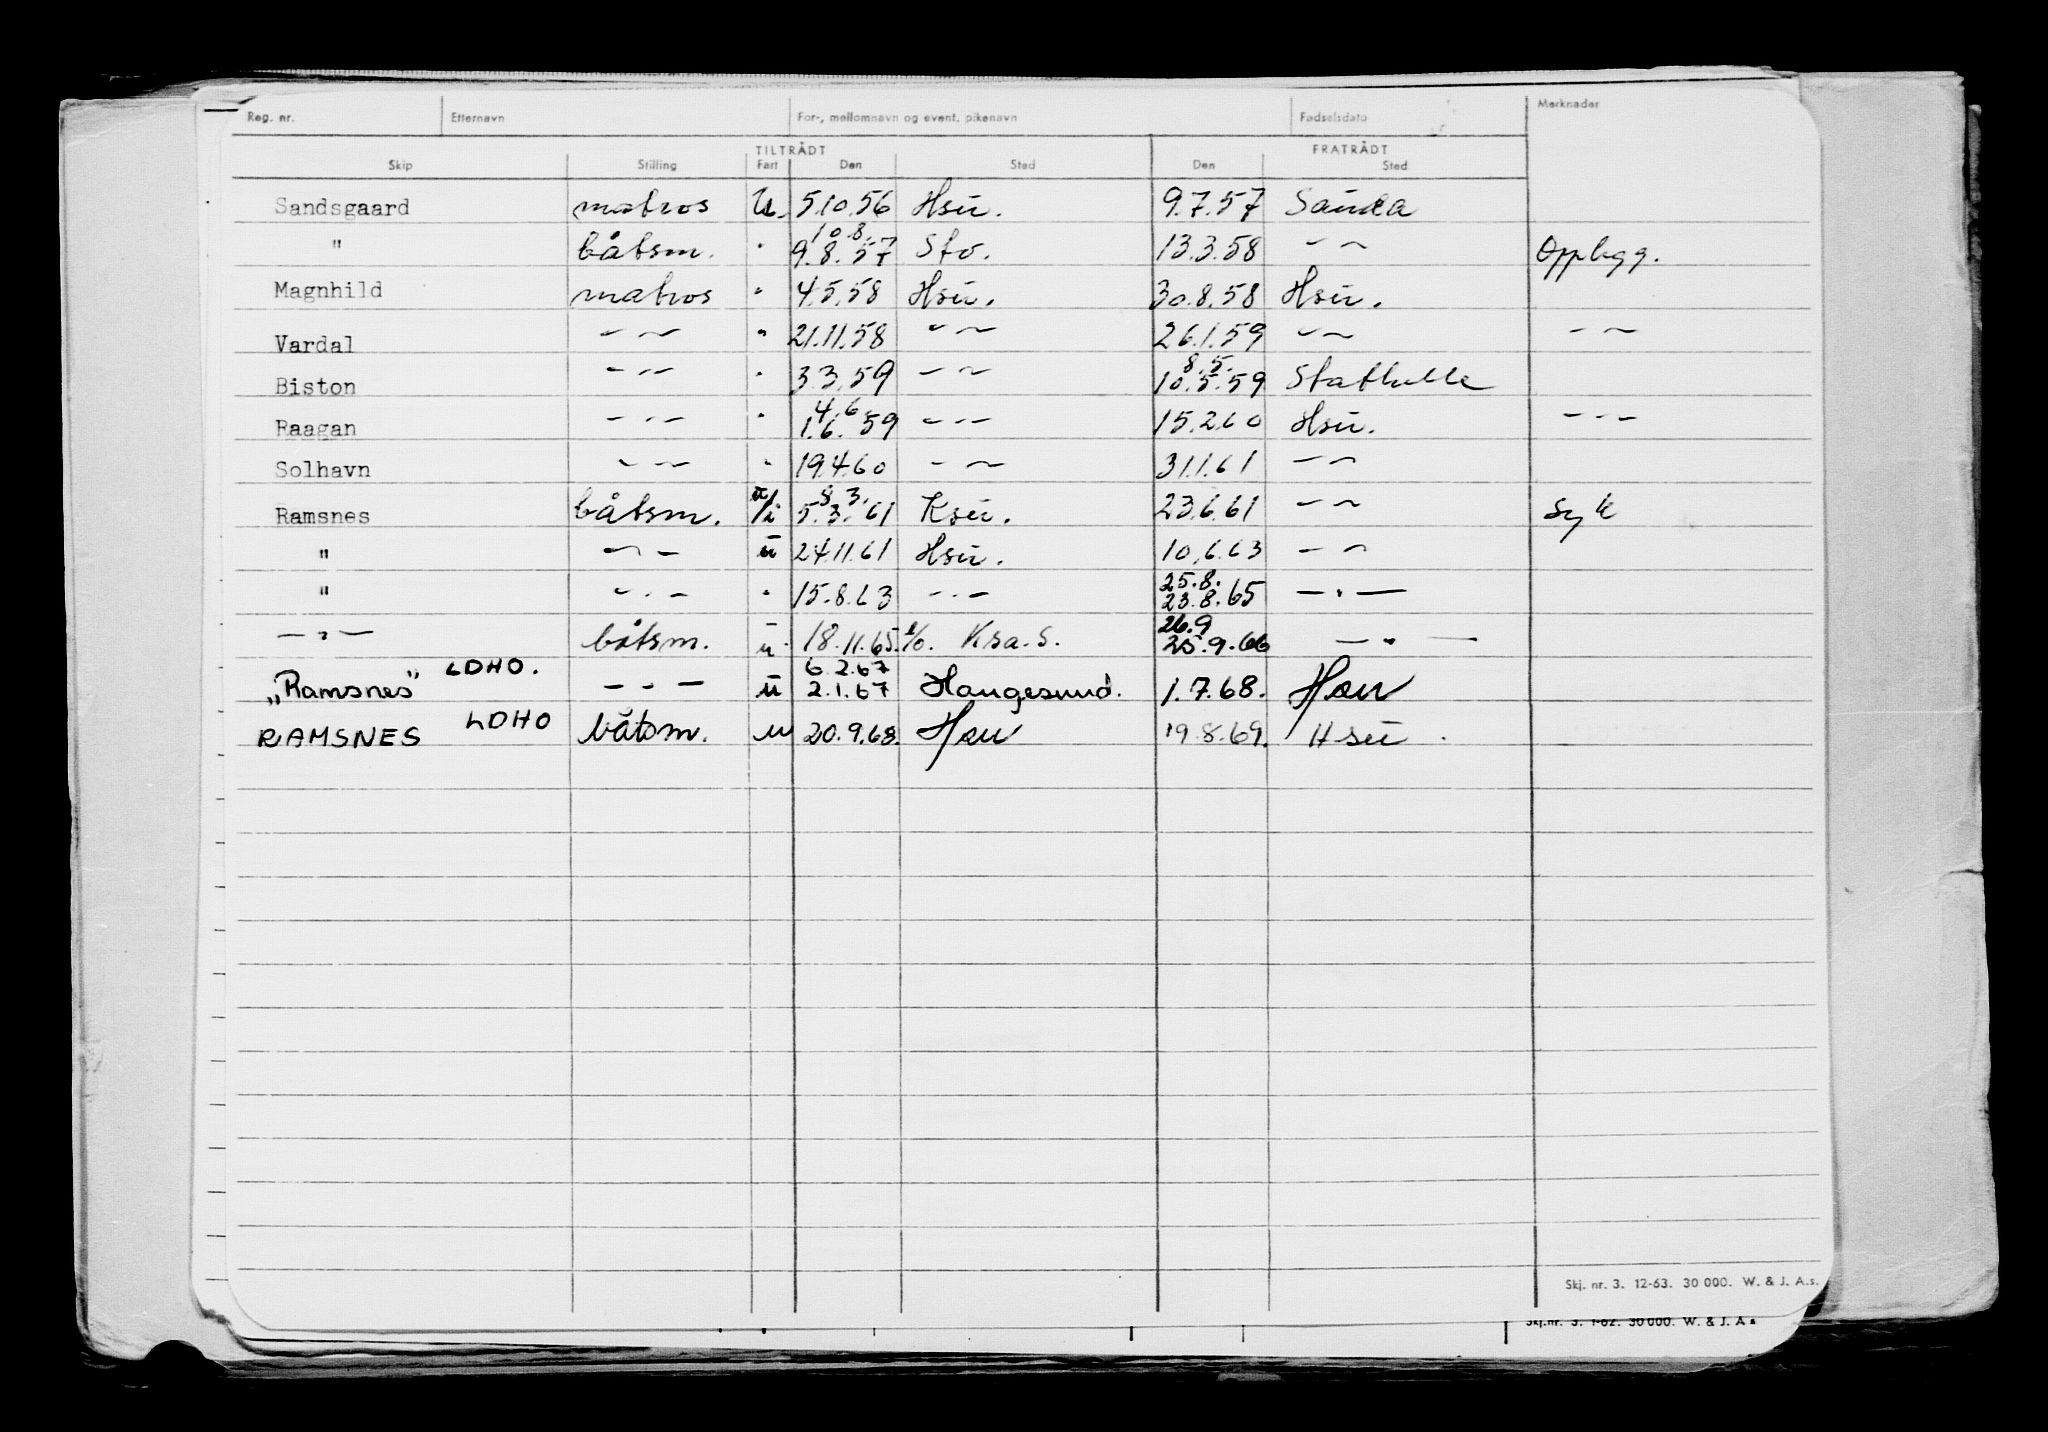 Reg. nr. Etternavn For-, mellomnavn og event. pikenavn Fødselsdato Merknader
TILTRÅDT FRATRÅDT
Skip Stilling Fart Den Sted Den Sted
Sandsgaard matros U. 5.10.56 Hsu. 9.7.57 Sauda
10.8.
" båtsm. " 9.8.57 Sto. 13.3.58 — " — Opplegg.
Magnhild matros " 4.5.58 Hsu. 30.8.58 Hsu.
Vardal — " — " 21.11.58 — " — 26.1.59 — " — — " —
8.5.
Biston — " — " 3.3.59 — " — 10.5.59 Stathelle
4.6
Raagan — " — " 1.6.59 — " — 15.2.60 Hsu. — " —
Solhavn — " — " 19.4.60 — " — 31.1.61 — " —
8.3.
Ramsnes båtsm. u/i 5.3.61 Ksu. 23.6.61 — " — Syk
" — " — u 24.11.61 Hsu. 10.6.63 — " —
25.8.
" — " — " 15.8.63 — " — 23.8.65 — " —
26.9
— " — båtsm. u. 18.11.65. Krsa.S. 25.9.66 — " —
6.2.67
„Ramsnes" LDHO. — " — u 2.1.67 Haugesund. 1.7.68. Hau
RAMSNES LDHO båtsm. u 20.9.68. Hau 19.8.69. Hsu.
Skj. nr. 3. 12-63. 30 000. W. & J. A.s.
Skj. nr. 3. 1-62. 30 000. W. & J. A.s